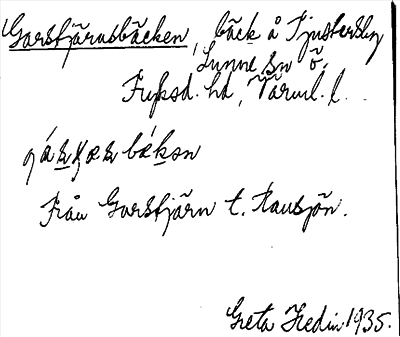 Garstjärnsbäcken, bäck å Tjustersby
Sunne sn ö.
Fryksd. hd, Värml. l.
bäkən
Från Garstjärn t. Rausjön.
Greta Hedin 1935.